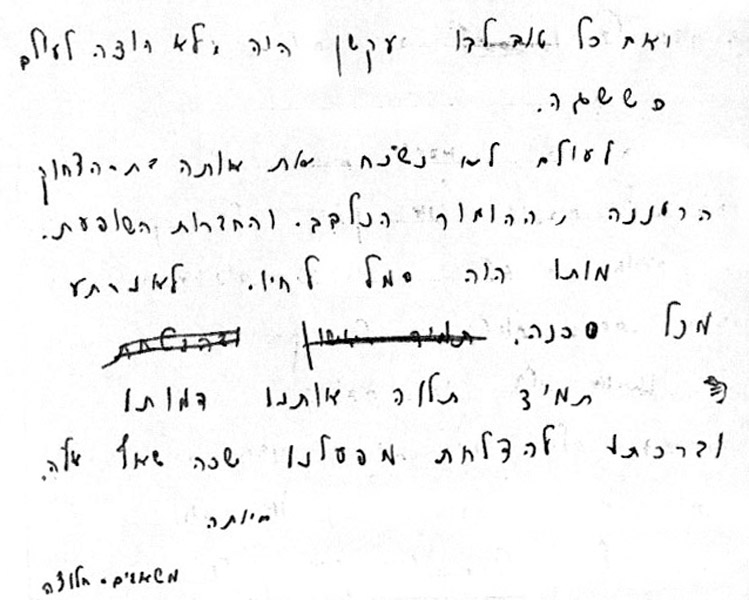 ואת כל טוב לבו עקשן היה ולא רוצה לעולם
לעולם לא נשכח את אותה בת-הצחוק
הרעננה וההומור הנלבב. והחדרות השופעת.
מותו היה סמל לחיו. לא נרתע
מכל סכנה.
תמיד תלוה אותנו דמותו
וברכותו להצלחת מפעלנו שכה שאף אליה.
משאבים - חלוצה